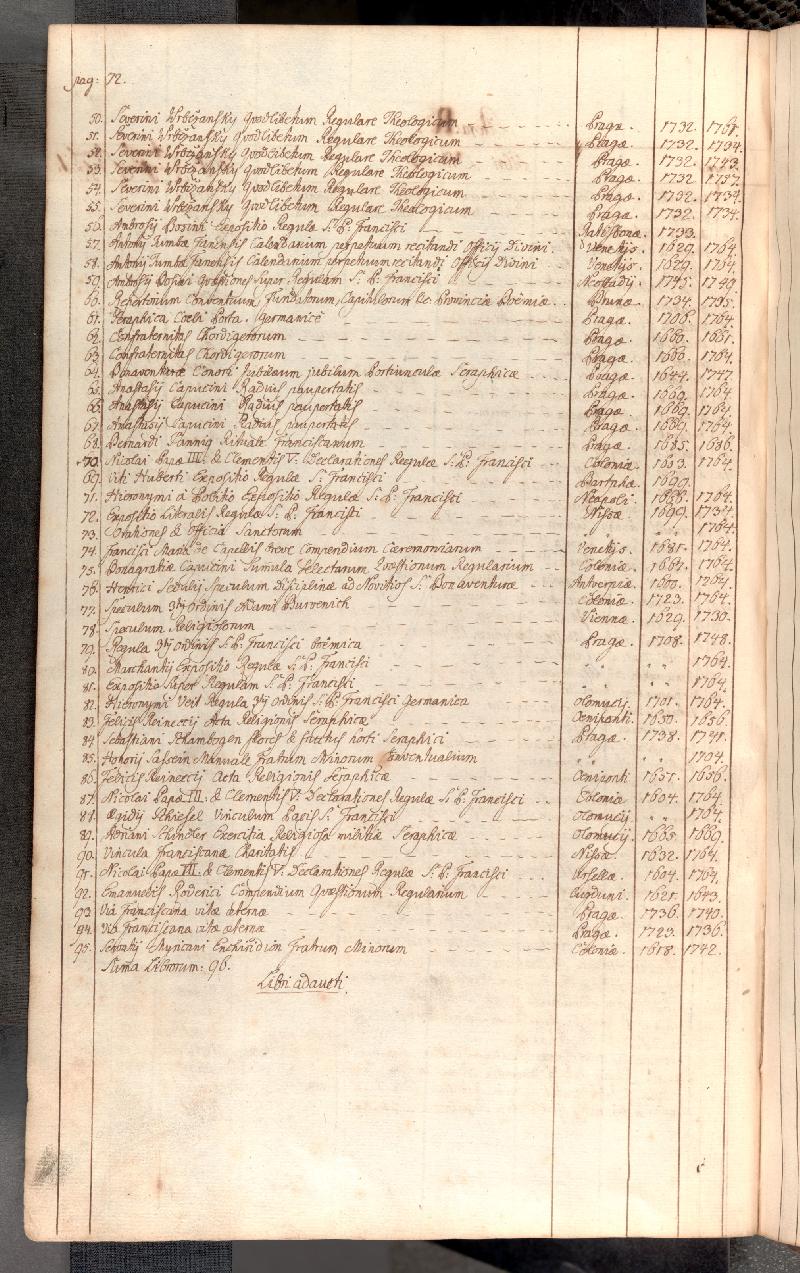 pag: 72.
50. Severini Wrbčžansky Quodlibetum Regulare Theologicum Pragæ. 1732. 1761.
51. Severini Wrbčžansky Quodlibetum Regulare Theologicum Pragæ. 1732. 1734.
52. Severini Wrbčžansky Quodlibetum Regulare Theologicum Pragæ. 1732. 1743.
53. Severini Wrbčžansky Quodlibetum Regulare Theologicum Pragæ. 1732 1737.
54. Severini Wrbčžansky Quodlibetum Regulare Theologicum. Pragæ. 1732. 1734.
55. Severini Wrbčžansky Quodlibetum Regulare Theologicum Pragæ. 1732. 1734.
56. Ambrosÿ Bosini Expositio Regulæ S: P: Francisci 1733.
57. Antonÿ Tumbæ Calendarium perpetuum recitandi Officÿ Divini. Venetÿs. 1629. 1764.
58. Antonÿ Tumbæ Calendarium perpetuum recitandi Officÿ Divini Venetÿs. 1629. 1764.
59. Ambrosÿ Bosini Quæstiones super Regulam S: P: Francisci Neostadÿ. 1745. 1749.
60. Repertorium Conventuum, Fundatorum, Capitulorum &c. Provinciæ Boëmiæ Brunæ. 1734. 1735.
61. Seraphica Coeli Porta. Germanicè Pragæ. 1708. 1764.
62. Confraternitas Chordigerorum Pragæ. 1661.
63. Confraternitas Chordigerorum Pragæ. 1764.
64. Bonaventuræ Conorti Jubilæum jubilum Portiunculæ Seraphicæ Pragæ. 1644. 1747.
65. Anastasÿ Capucini Radius paupertatis Pragæ. 1669. 1764
66. Anastasÿ Capucini Radius paupertatis Pragæ. 1669. 1764.
67. Anastasÿ Capucini Radius paupertatis Pragæ. 1669. 1764.
68. Bernardi Sannig Rituale Franciscanum Pragæ. 1685. 1686.
70. Nicolai Papæ III: & Clementis V: Declarationes Regulæ S: P: Francisci Coloniæ. 1764.
69. Viti Huberti Expositio Regulæ S: Francisci 1699.
71. Hieronymi à Politio Expositio Regulæ S: P: Francisci Neapoli. 1764.
72. Expositio Literalis Regulæ S: P: Francisci Nissæ. 1699. 1734.
73. Orationes & Officia Sanctorum " " 1764.
74. Francisci Maria de Capellis breve Compendium Cæremoniarum Venetÿs. 1681. 1764.
75. Bonagratiæ Capucini Sumula Selectarum Quæstionum Regularium Coloniæ. 1764.
76. Henrici Sedulÿ Speculum Disciplinæ ad Novitios S: Bonaventuræ Antverpiæ. 1764.
77. Speculum 3tÿ Ordinis Adami Burvenich Coloniæ. 1723. 1764.
78. Speculum Religiosorum Viennæ. 1629. 1730.
79. Regula 3tÿ Ordinis S: P: Francisci boëmica Pragæ. 1708. 1748.
80. Marchantÿ Expositio Regulæ S: P: Francisci " " 1764.
81. Expositio super Regulam S: P: Francisci " " 1764.
82. Hieronymi Veit Regula 3tÿ Ordinis S: P: Francisci Germanica Olomucÿ. 1701. 1764.
83. Felicis Reinerÿ Acta Religionis Seraphicæ Oeniponti. 1650. 1656.
84. Sebastiani Schambogen Flores & fructus horti Seraphici Pragæ. 1738. 1741.
85. Honorÿ Manuale Fratrum Minorum Conventualium " " 1704.
86. Felicis Reinercÿ Acta Religionis Seraphicæ 1651. 1656.
87. Nicolai Papæ III: & Clementis V: Declarationes Regulæ S: P: Francisci Coloniæ 1604. 1764.
88. Ægidÿ Schiesel Vinculum Pacis S: Francisci Olomucÿ. " " 1764.
89. Adriani Schindler Exercitia Religiosæ militiæ Seraphicæ Olomucÿ. 1665. 1669.
90. Vincula Franciscanæ Charitatis Nissæ. 1692. 1764.
91. Nicolai Papæ III: & Clementis V: Declarationes Regulæ S: P: Francisci 1604. 1764.
92. Emanuelis Roderici Compendium Quæstionum Regularium Lugduni. 1621. 1643.
93. Via Franciscana vitæ æternæ Pragæ. 1736. 1740.
94. Via Franciscana vitæ æternæ Pragæ. 1723. 1736.
95. Enchiridion Fratrum Minorum Coloniæ. 1618. 1742.
Suma Librorum: 96.
Libri adaucti.